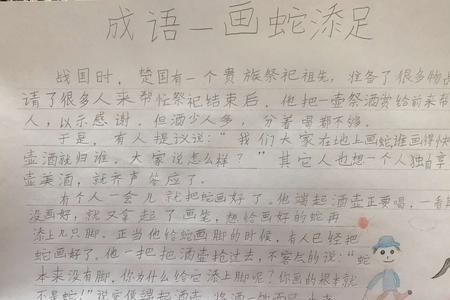 成语—画蛇添足
战国时，楚国有一个贵族祭祀祖先，准备了很多物品
请了很多人来帮忙祭祀结束后，他把一壶祭酒赏给前来帮
人，以示感谢。但酒少人多，分着喝都不够。
于是，有人提议说：“我们大家在地上画蛇谁画得快
壶酒就归谁，大家说怎么样？”其它人也想一个人独自享
壶美酒，就齐声答应了。
有个人一会儿就把蛇画好了。他端起酒壶正要喝，一看
没画好，就又拿起了画笔，想给画好的蛇再
添上几只脚。正当他给蛇画脚的时候，有人已经把
蛇画好了，他一把把酒壶抢过去，不客气的说：“蛇
本来没有脚，你为什么给它添上脚呢？你画的根本就
不是蛇！”说完便端起酒壶，将酒一饮而